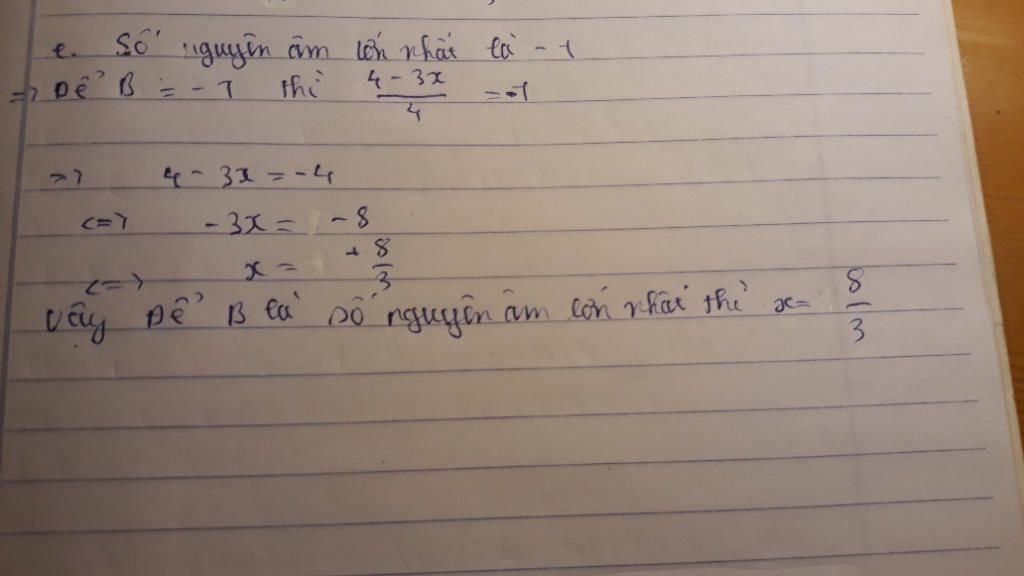 e. Số nguyên âm lớn nhất là -1
=> Để B = -1 thì \frac{4-3x}{4} = -1
=> 4 - 3x = -4
<=> -3x = -8
<=> x = + \frac{8}{3}
Vậy Để B là số nguyên âm lớn nhất thì x = \frac{8}{3}